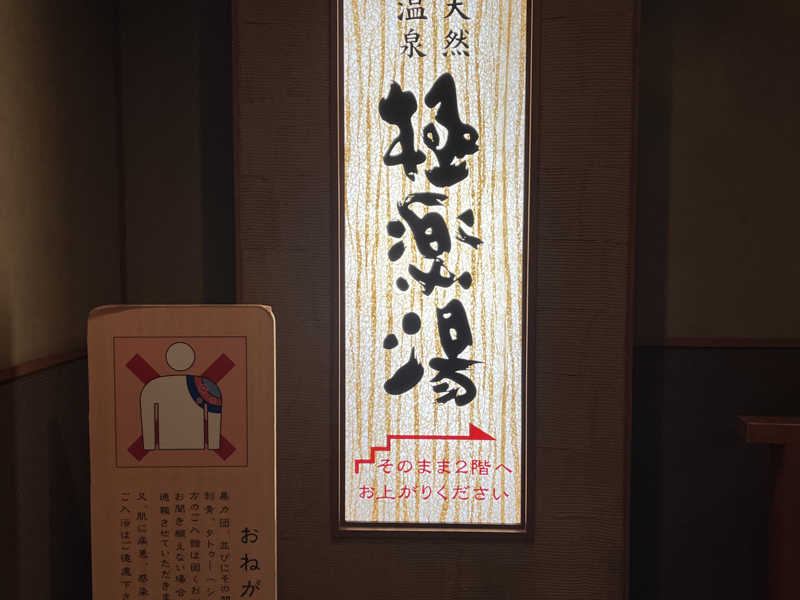 天然
温泉
極楽湯
そのまま2階へ
お上がりください
おねが
暴力団、並びにその
刺青、タトゥー(シ
方のご入館は固くお
お聞き頂えない場合
通報させていただきま
又、肌に病患、感染
ご入浴はご遠慮下さ